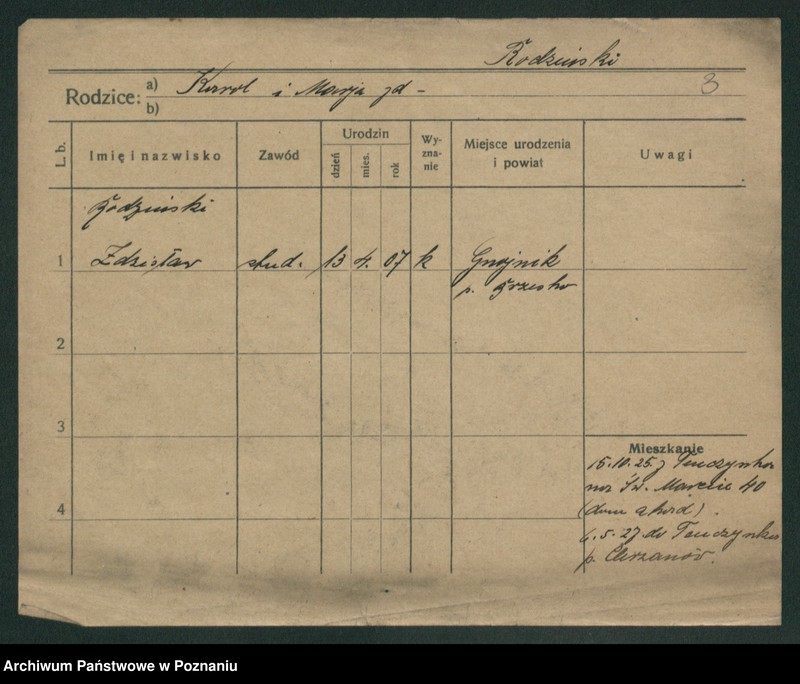 Rodziński
Rodzice: a) Karol i Marja zd –
b)
3
L. b.
Imię i nazwisko
Zawód
Urodzin
dzień
mies.
rok
Wy-
zna-
nie
Miejsce urodzenia
i powiat
Uwagi
Rodziński
1 Zdzisław stud. 13 4. 07 k Gnojnik
p. Brzesko
2
3
4
Mieszkanie
15.10.25. z Tenczynka
na Św. Marcin 40
(dom akad).
6.5.27 do Tenczynka
p. Chrzanów.
Archiwum Państwowe w Poznaniu